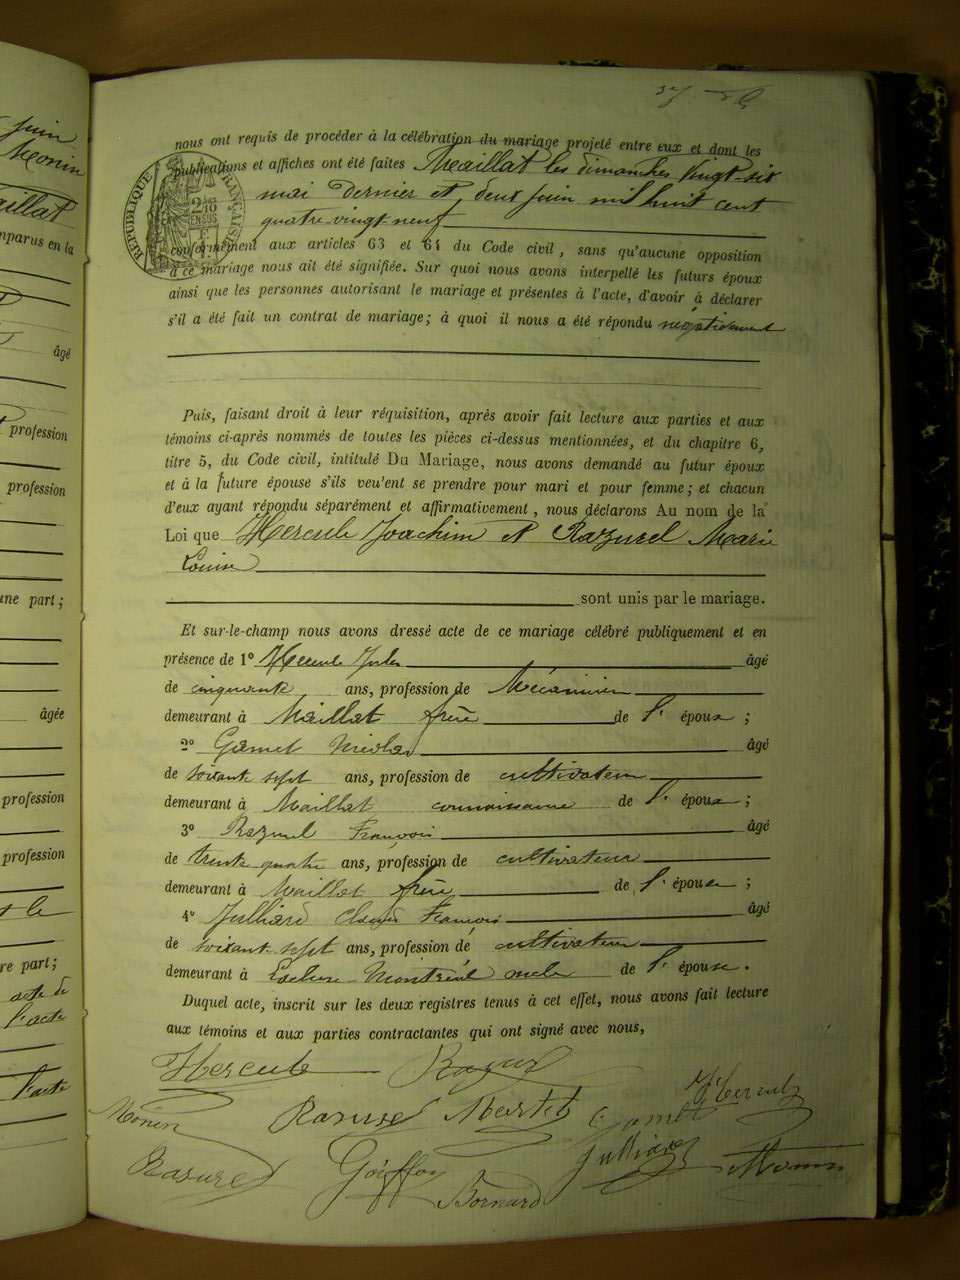 nous ont requis de procéder à la célébration du mariage projeté entre eux et dont les
publications et affiches ont été faites Maillat les dimanches vingt-six
mai dernier et deux juin mil huit cent
quatre-vingt neuf
conformément aux articles 63 et 64 du Code civil, sans qu'aucune opposition
à ce mariage nous ait été signifiée. Sur quoi nous avons interpellé les futurs époux
ainsi que les personnes autorisant le mariage et présentes à l'acte, d'avoir à déclarer
s'il a été fait un contrat de mariage; à quoi il nous a été répondu négativement
Puis, faisant droit à leur réquisition, après avoir fait lecture aux parties et aux
témoins ci-après nommés de toutes les pièces ci-dessus mentionnées, et du chapitre 6,
titre 5, du Code civil, intitulé Du Mariage, nous avons demandé au futur époux
et à la future épouse s'ils veu'ent se prendre pour mari et pour femme; et chacun
d'eux ayant répondu séparément et affirmativement, nous déclarons Au nom de la
Loi que Hercule Joachim et Razurel Marie
Louise
sont unis par le mariage.
Et sur-le-champ nous avons dressé acte de ce mariage célébré publiquement et en
présence de 1° Hercule Jules âgé
de cinquante ans, profession de Mécanicien
demeurant à Maillat frère de l' époux ;
2° Gamet Nicolas âgé
de soixante sept ans, profession de cultivateur
demeurant à Maillat connaissance de l' époux ;
3° Razurel François âgé
de trente quatre ans, profession de cultivateur
demeurant à Maillat frère de l' épouse ;
4° Julliard Claude François âgé
de soixante sept ans, profession de cultivateur
demeurant à Montréal oncle de l' épouse.
Duquel acte, inscrit sur les deux registres tenus à cet effet, nous avons fait lecture
aux témoins et aux parties contractantes qui ont signé avec nous,
Hercule
J Hercule
Monin Martel Gamet
Goiffon Julliard Monin
Bornard
RÉPUBLIQUE FRANÇAISE
juin
Monin
Maillat
comparus en la
âgé
profession
profession
une part;
âgée
profession
profession
re part;
acte de
l'acte
l'acte